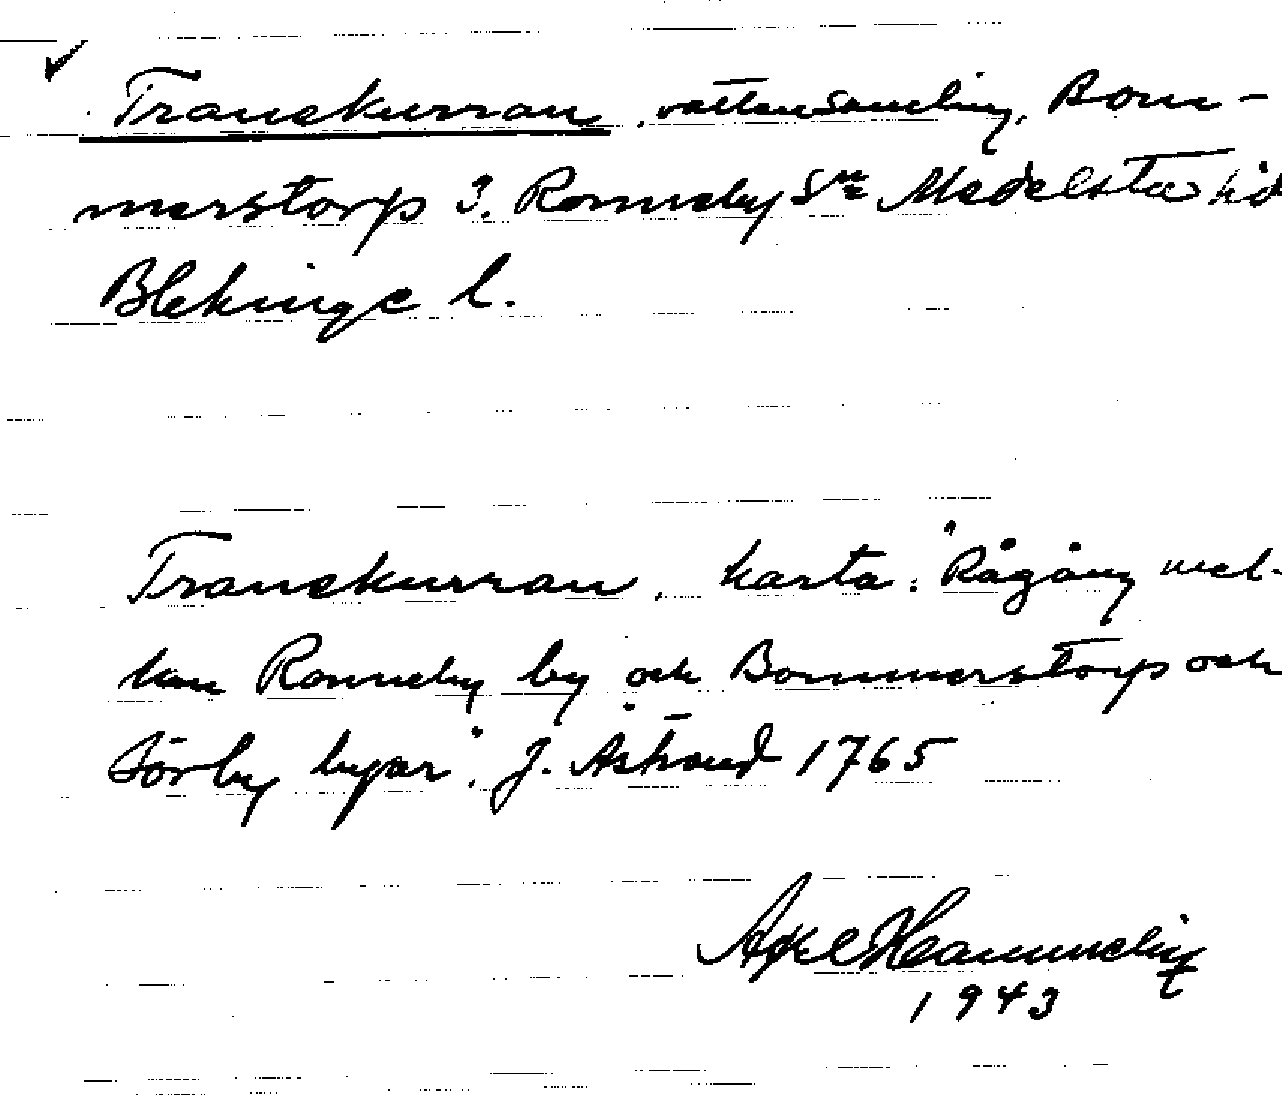 Tranekurran, vattensamling, Bom-
merstorp 3. Ronneby Sn Medelsta hd
Blekinge l.
Tranekurran, karta: "Rågång mel-
lan Ronneby by och Bommerstorp och
Sörby byar". J. Åstrand 1765
Axel
1943